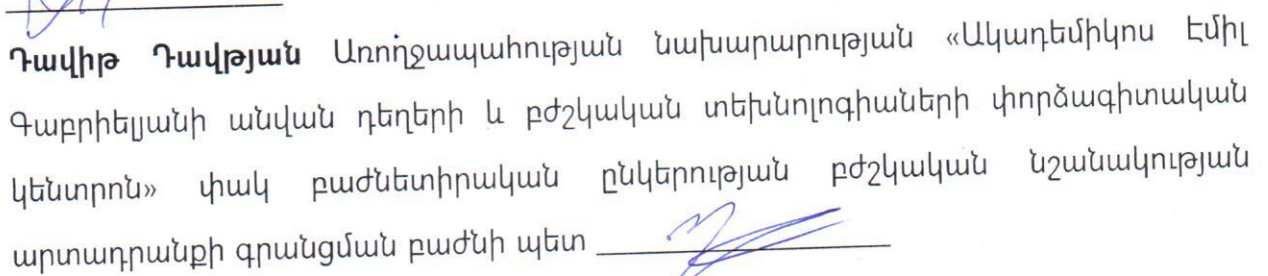 Դավիթ Դավթյան Առողջապահության նախարարության «Ակադեմիկոս Էմիլ
Գաբրիելյանի անվան դեղերի և բժշկական տեխնոլոգիաների փորձագիտական
կենտրոն» փակ բաժնետիրական ընկերության բժշկական նշանակության
արտադրանքի գրանցման բաժնի պետ